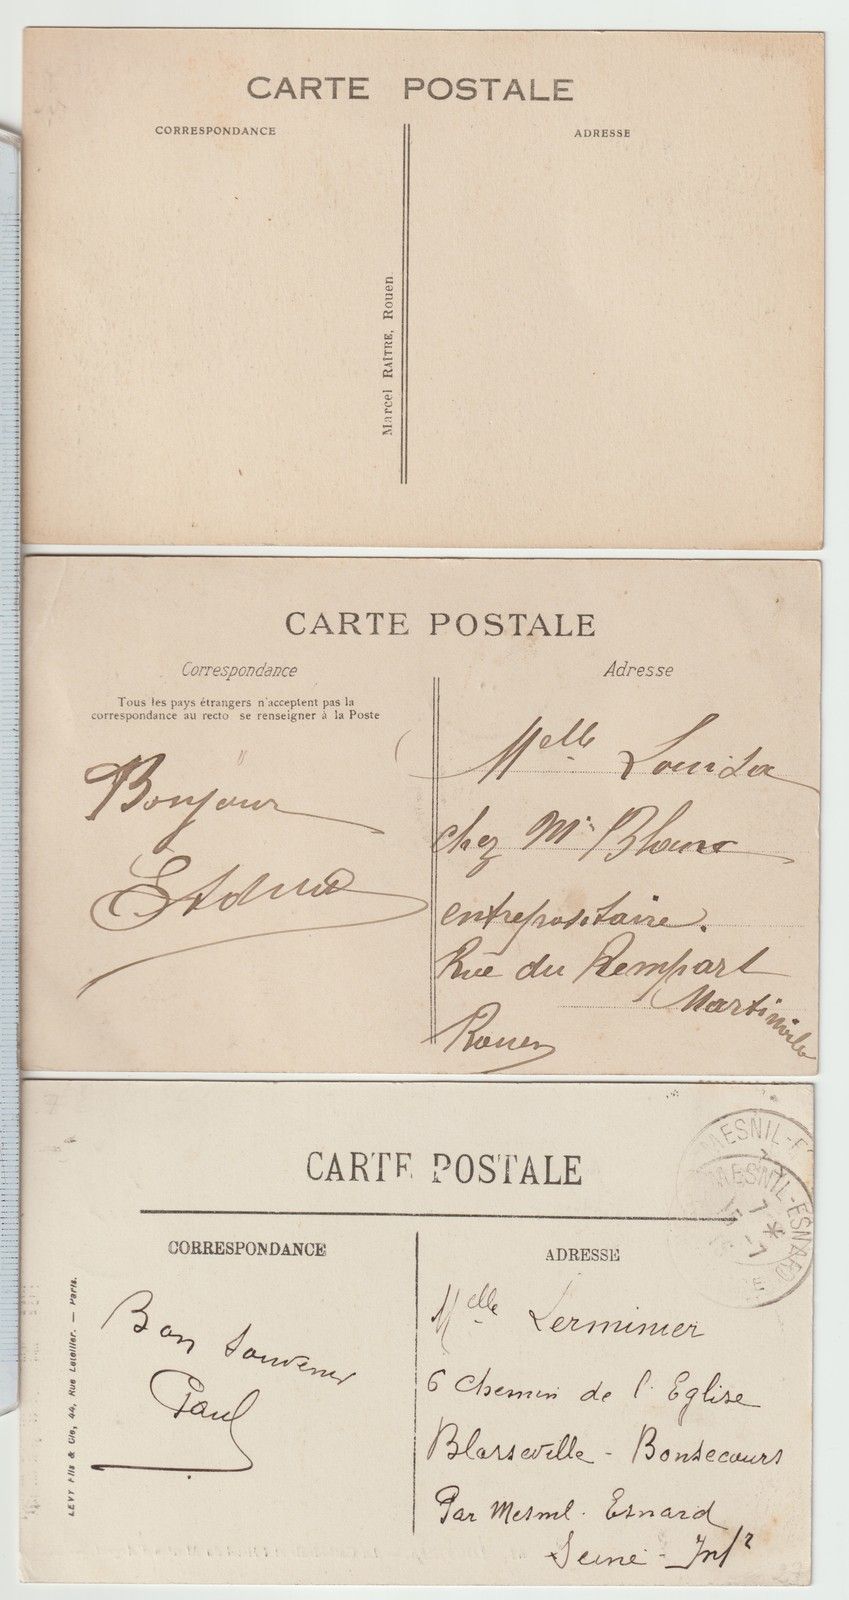 CARTE POSTALE
CORRESPONDANCE
ADRESSE
Marcel RAÎTRE, Rouen
CARTE POSTALE
Correspondance
Adresse
Tous les pays étrangers n'acceptent pas la
correspondance au recto se renseigner à la Poste
Bonjour
Melle Louisa
chez Mr Blanc
entrepositaire.
Rue du Rempart
Martinville
Rouen
CARTE POSTALE
MESNIL-E
MESNIL-ESNARD
CORRESPONDANCE
ADRESSE
LEVY Fils & Cie, 44, Rue Letellier. — Paris.
Bon Souvenir
Paul
Melle Lerminier
6 Chemin de l'Eglise
Blosseville - Bonsecours
Par Mesnil-Esnard
Seine-Infr